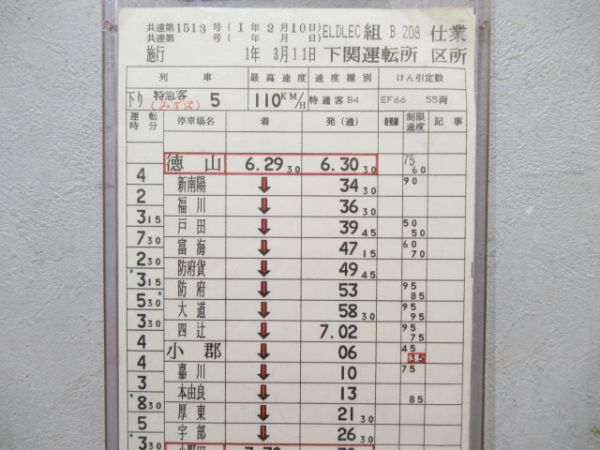 共達第1513号(1年2月10日)ELDLEC 組 B 208 仕業
共達第 号( 年 月 日)
施行 1年 3月11日 下関運転所 区所
列車 最高速度 速度種別 けん引定数
下り 特急客 5 110KM/H 特通客B4 EF66 55両
(みずほ)
運転時分 停車場名 着 発(通) 制限速度 記事
徳山 6.29 30 6.30 30 75 60
4 新南陽 ↓ 34 30 90
2 福川 ↓ 36 30
3 15 戸田 ↓ 39 45 50 50
7 30 富海 ↓ 47 15 60 70
2 30 防府貨 ↓ 49 45
3 15 防府 ↓ 53 95 85
5 30 大道 ↓ 58 30 95 95
3 30 四辻 ↓ 7.02 95 75
4 小郡 ↓ 06 45 35
4 嘉川 ↓ 10 75
3 本由良 ↓ 13 85
8 30 厚東 ↓ 21 30
5 宇部 ↓ 26 30
3 30